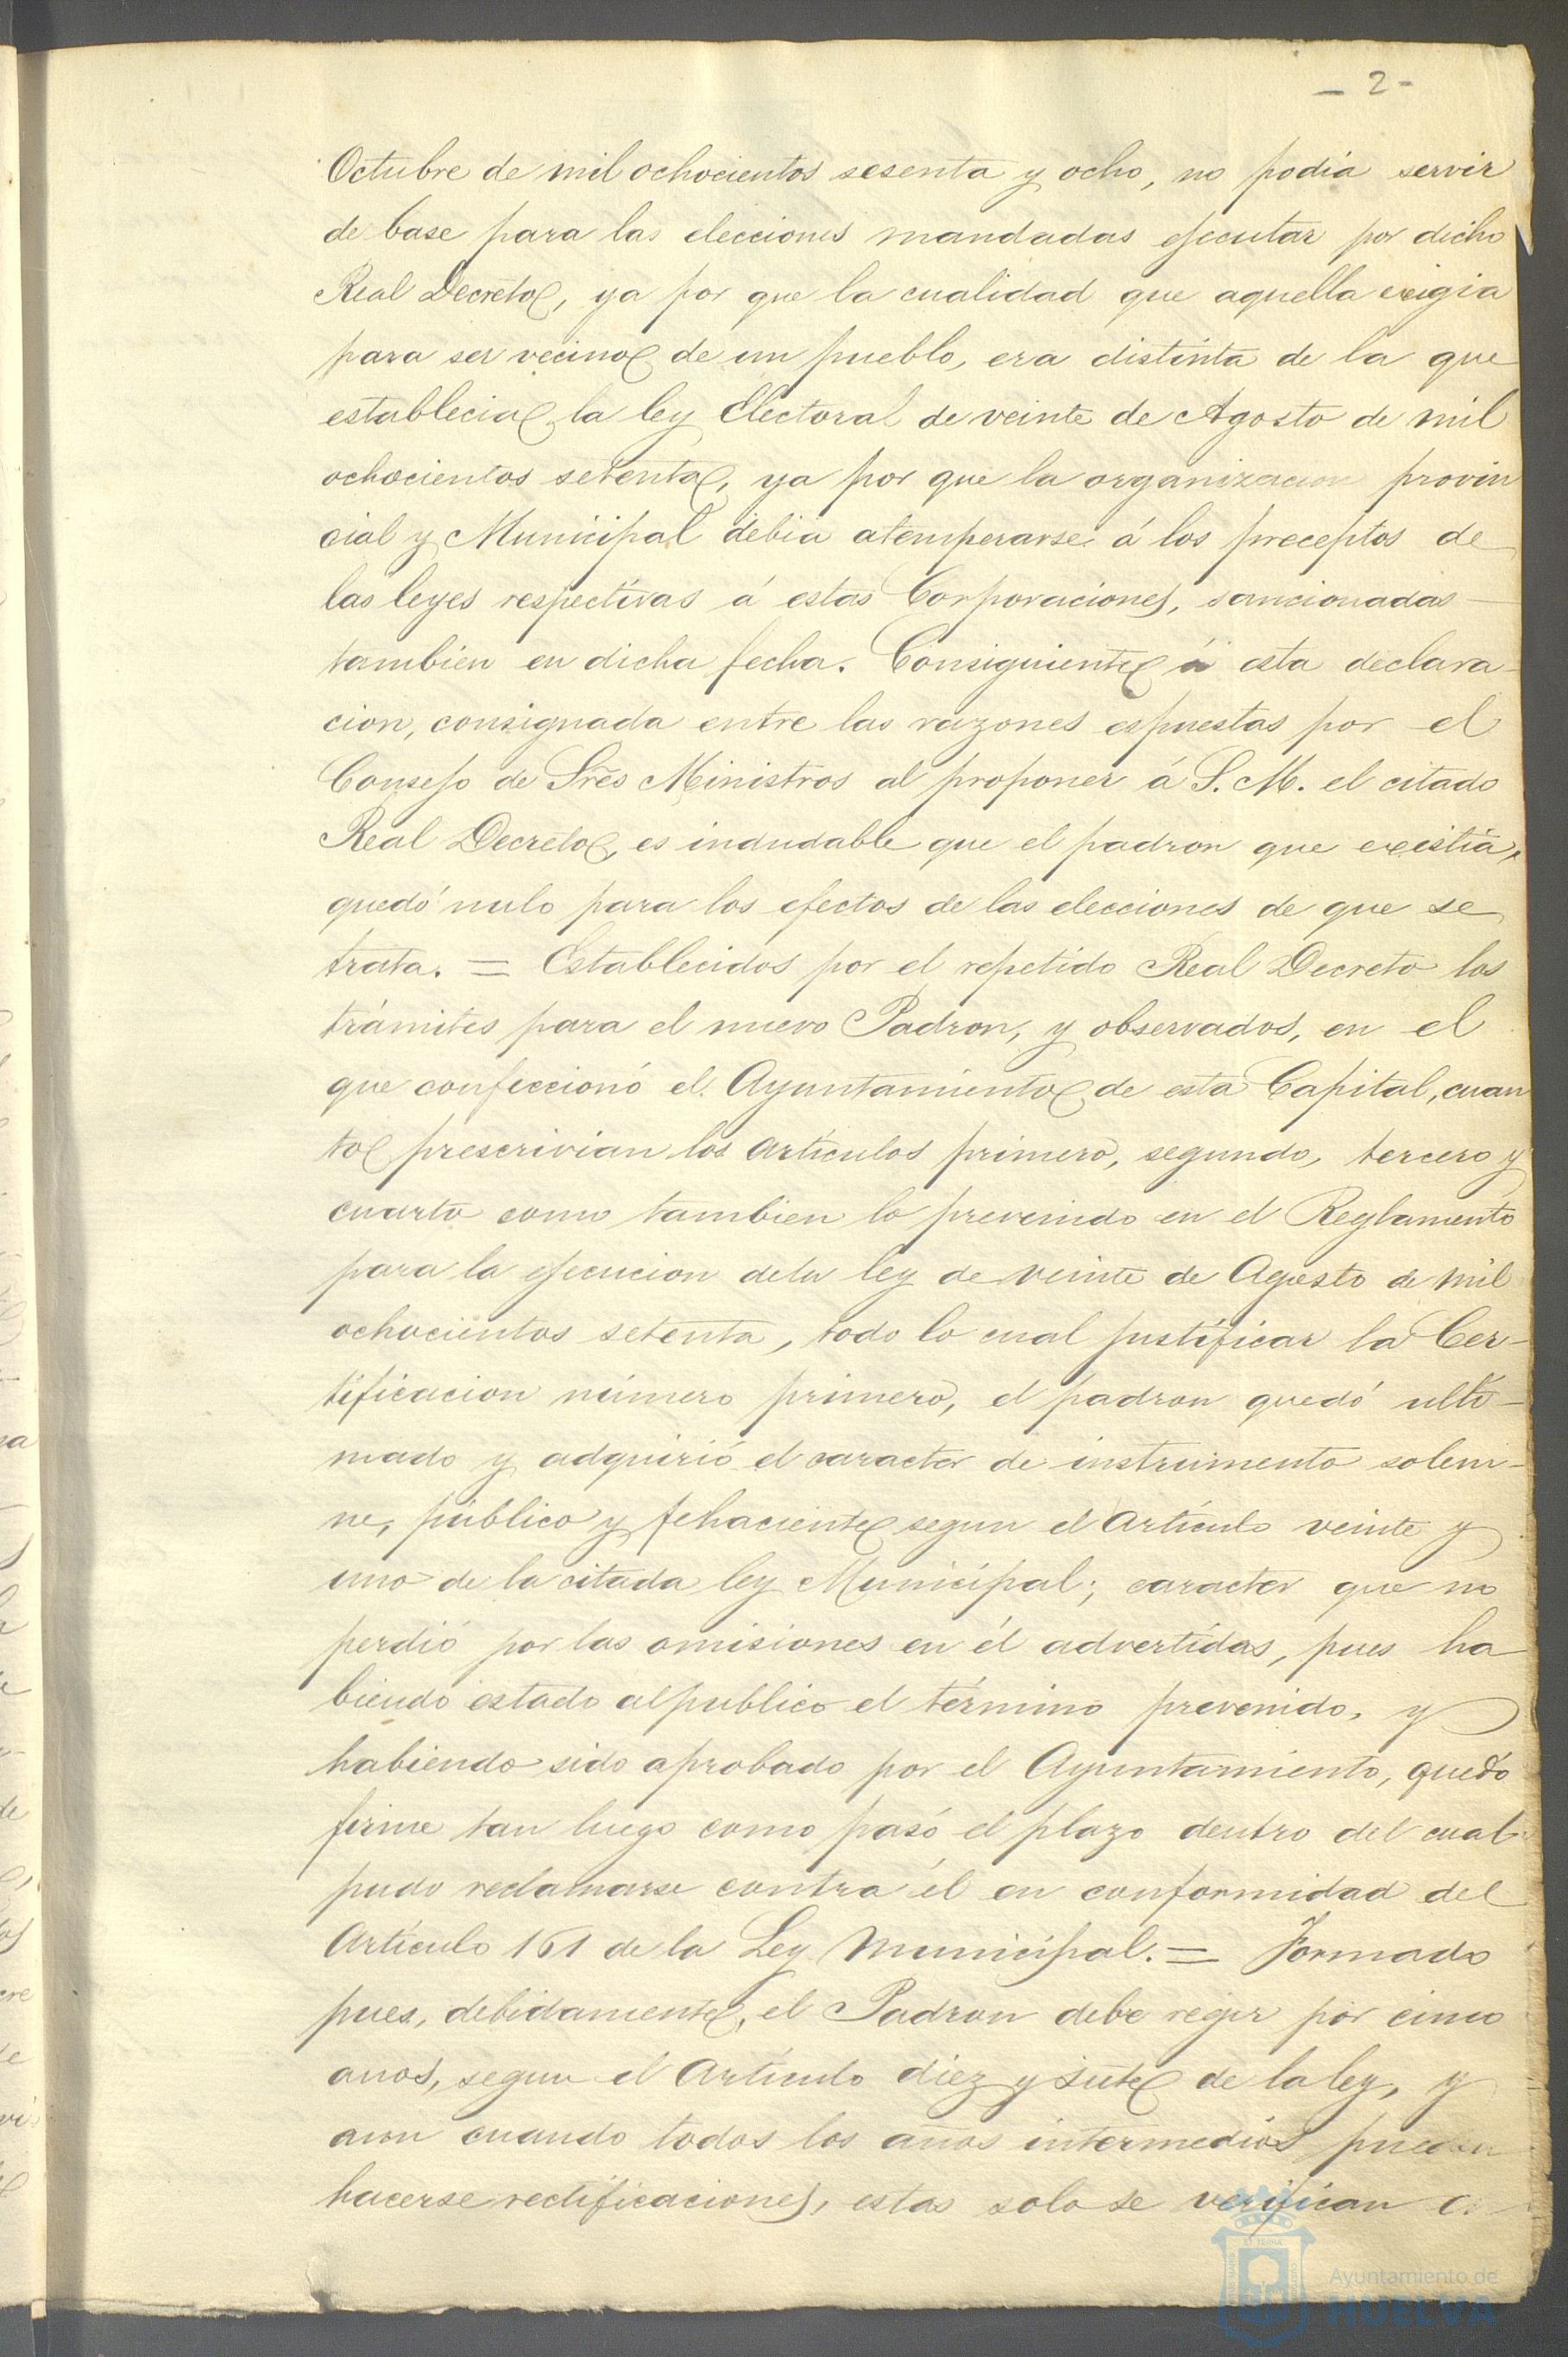 - 2 -
Octubre de mil ochocientos sesenta y ocho, no podia servir
de base para las elecciones mandadas ejecutar por dicho
Real Decreto, ya por que la cualidad que aquella exigia
para ser vecino de un pueblo, era distinta de la que
establecia la ley Electoral de veinte de Agosto de mil
ochocientos setenta, ya por que la organizacion provin
cial y Municipal debia atemperarse á los preceptos de
las leyes respectivas á estas Corporaciones, sancionadas
tambien en dicha fecha. Consiguiente á esta declara-
cion, consignada entre las razones espuestas por el
Consejo de Sres Ministros al proponer á S. M. el citado
Real Decreto, es indudable que el padron que existia,
quedó nulo para los efectos de las elecciones de que se
trata. = Establecidos por el repetido Real Decreto los
trámites para el nuevo Padron, y observados, en el
que confeccionó el Ayuntamiento de esta Capital, cuan
to prescrivian los artículos primero, segundo, tercero y
cuarto como tambien lo prevenido en el Reglamento
para la ejecucion dela ley de veinte de Agosto de mil
ochocientos setenta, todo lo cual justificar la Cer-
tificacion número primero, el padron quedó ulti-
mado y adquirió el caracter de instrumento solem-
ne, público y fehaciente segun el Artículo veinte y
uno de la citada ley Municipal; caracter que no
perdió por las omisiones en él advertidas, pues ha
biendo estado al publico el término prevenido, y
habiendo sido aprobado por el Ayuntamiento, quedó
firme tan luego como pasó el plazo dentro del cual
pudo reclamarse contra él en conformidad del
Artículo 161 de la Ley Municipal. = Formado
pues, debidamente, el Padron debe regir por cinco
anos, segun el Artículo diez y siete de la ley, y
aun cuando todos los años intermedios pueden
hacerse rectificaciones, estas solo se verifican
Ayuntamiento de
HUELVA